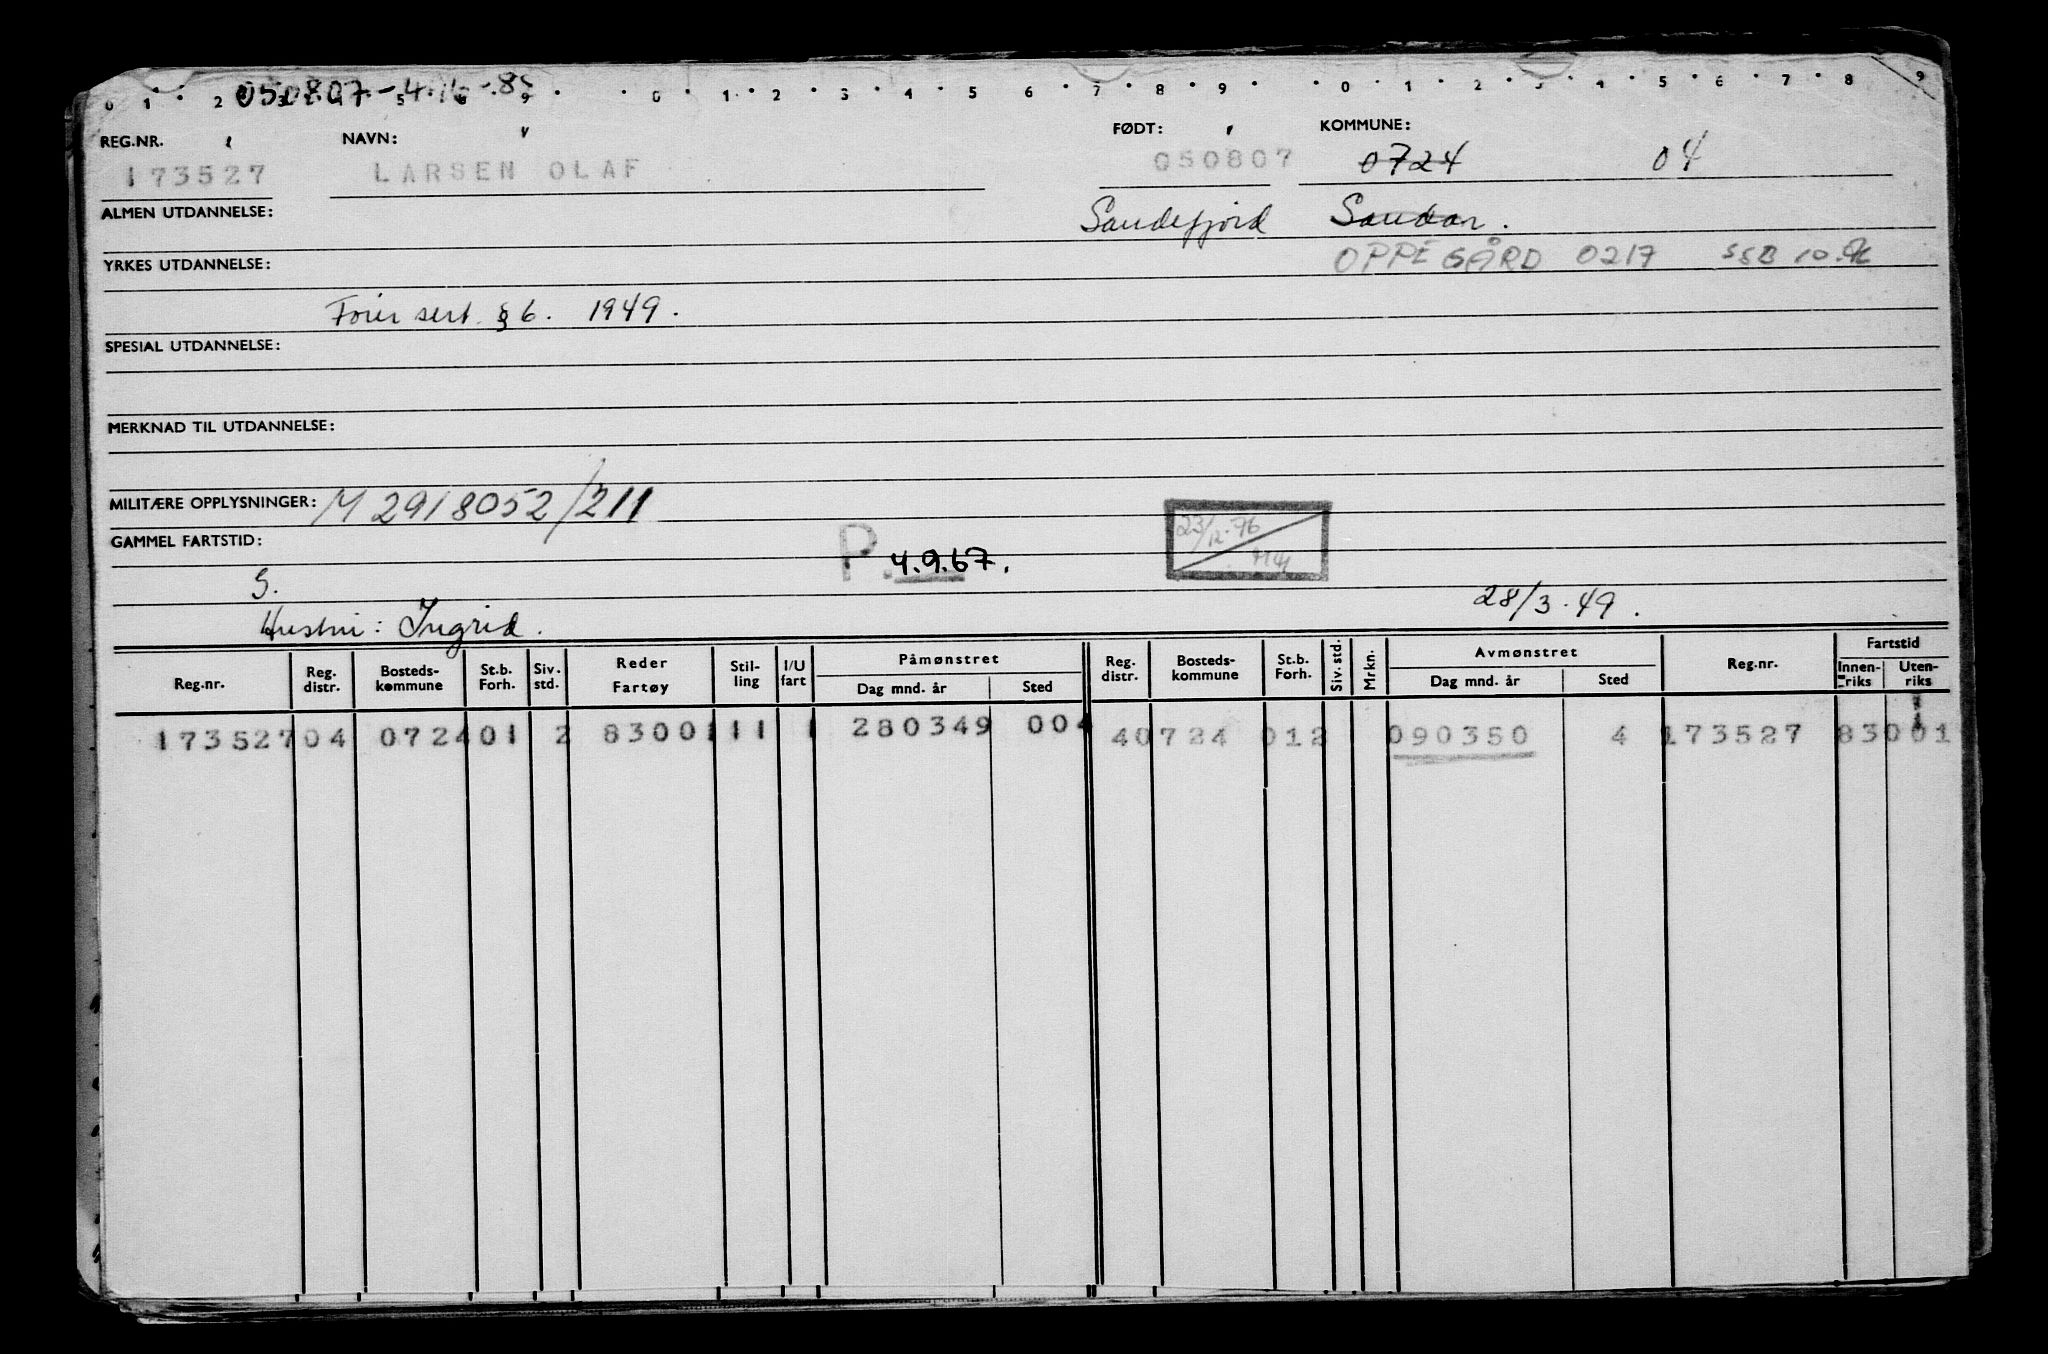 050807-4
0 1 2 3 4 5 6 9 0 1 2 3 4 5 6 7 8 9 0 1 2 3 4 5 6 7 8 9
REG.NR. NAVN: FØDT: KOMMUNE:
173527 LARSEN OLAF 050807 0724 04
ALMEN UTDANNELSE: Sandefjord Sandar.
YRKES UTDANNELSE: OPPEGÅRD 0217 SSB 10.
Foriersert. § 6. 1949.
SPESIAL UTDANNELSE:
MERKNAD TIL UTDANNELSE:
MILITÆRE OPPLYSNINGER: M 2918052/211
GAMMEL FARTSTID: P. 4.9.67. 23/12-76
S. 28/3.49.
Hustru: Ingrid.
Reg.nr. Reg. distr. Bosteds-kommune St.b. Forh. Siv. std. Reder Fartøy Stil-ling I/U fart Påmønstret Dag mnd. år Sted Reg. distr. Bosteds-kommune St.b. Forh. Siv. std. Mrkn. Avmønstret Dag mnd. år Sted Reg.nr. Fartstid Innen-riks Uten-riks
173527 04 0724 01 2 83001 11 1 280349 004 40724 012 090350 4 173527 83001